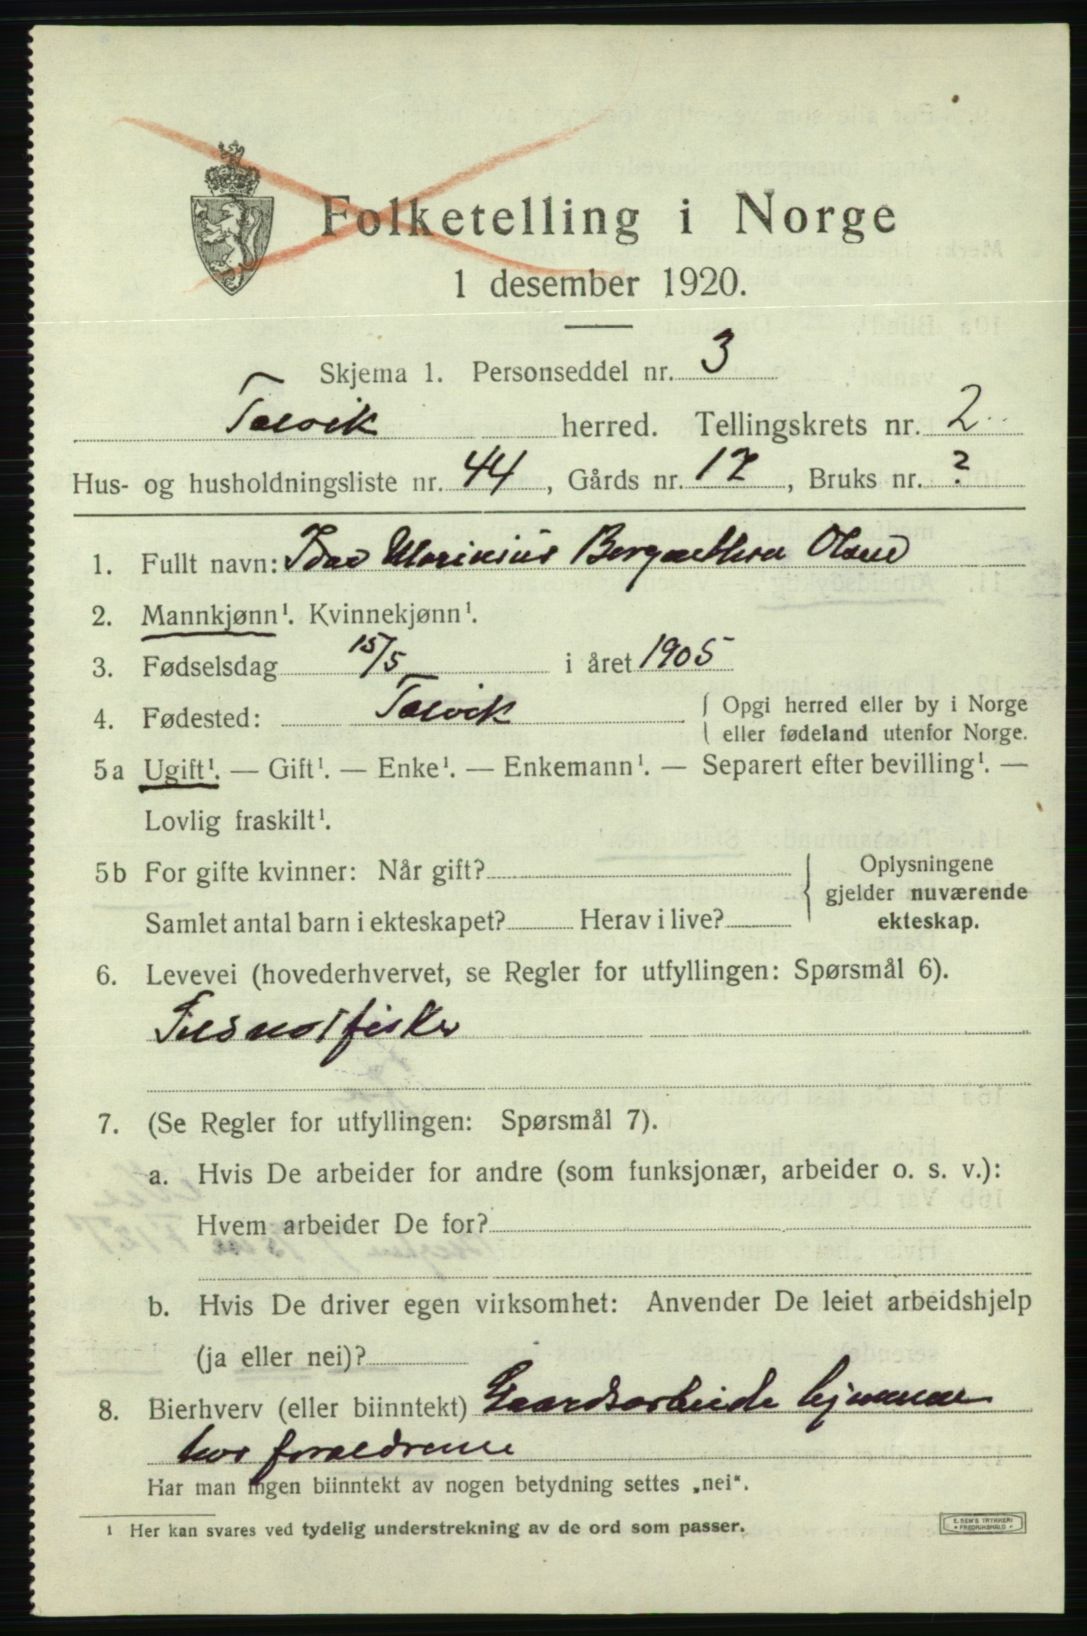 Folketelling i Norge
1 desember 1920.
Skjema 1. Personseddel nr. 3
Talvik herred. Tellingskrets nr. 2
Hus- og husholdningsliste nr. 44, Gårds nr. 17, Bruks nr. ?
1. Fullt navn: Marinius Olsen
2. Mannkjønn¹. Kvinnekjønn¹.
3. Fødselsdag 15/5 i året 1905
4. Fødested: Talvik { Opgi herred eller by i Norge
eller fødeland utenfor Norge.
5a Ugift¹. — Gift¹. — Enke¹. — Enkemann¹. — Separert efter bevilling¹. —
Lovlig fraskilt¹.
5b For gifte kvinner: Når gift?
Samlet antal barn i ekteskapet? Herav i live?
Oplysningene
gjelder nuværende
ekteskap.
6. Levevei (hovederhvervet, se Regler for utfyllingen: Spørsmål 6).
fisker
7. (Se Regler for utfyllingen: Spørsmål 7).
a. Hvis De arbeider for andre (som funksjonær, arbeider o. s. v.):
Hvem arbeider De for?
b. Hvis De driver egen virksomhet: Anvender De leiet arbeidshjelp
(ja eller nei)?
8. Bierhverv (eller biinntekt) Gaardsarbeide hjemme
hos forældrene
Har man ingen biinntekt av nogen betydning settes „nei“.
¹ Her kan svares ved tydelig understrekning av de ord som passer.
E. SEM'S TRYKKERI
• FREDRIKSHALD •